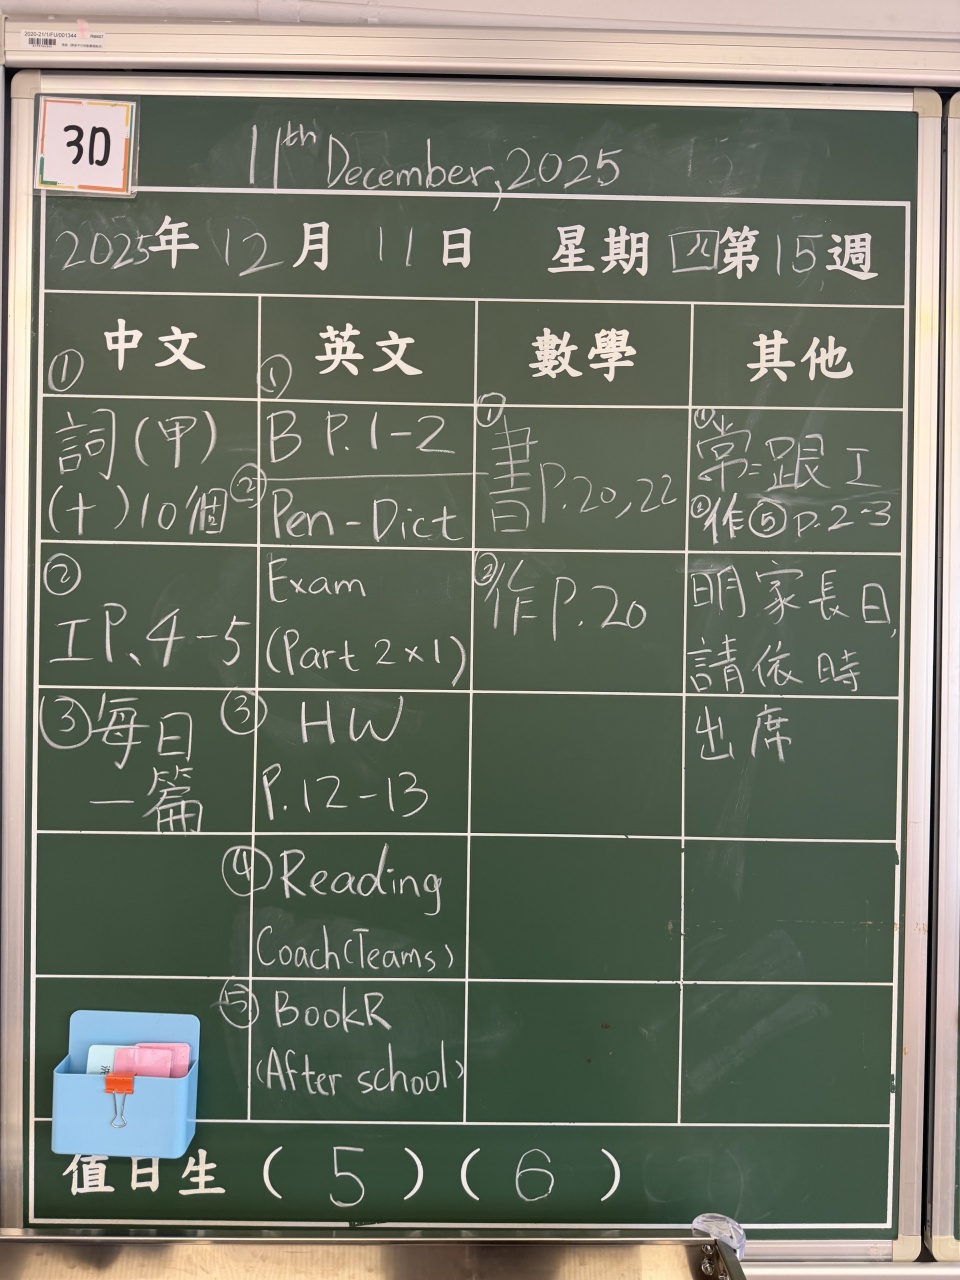 2020-21/1/FU/001344
3D
11th December, 2025
2025年 12月 11日 星期四 第15週
中文 英文 數學 其他
① 詞(甲)
(十)10個
② 工P.4-5
③ 每日
一篇
① B P.1-2
② Pen-Dict
Exam
(Part 2×1)
③ HW
P.12-13
④ Reading
Coach(Teams)
⑤ BookR
(After school)
① 書P.20,22
② 作P.20
① 常=跟工
② 作⑤ p.2-3
明家長日,
請依時
出席
值日生 (5)(6)